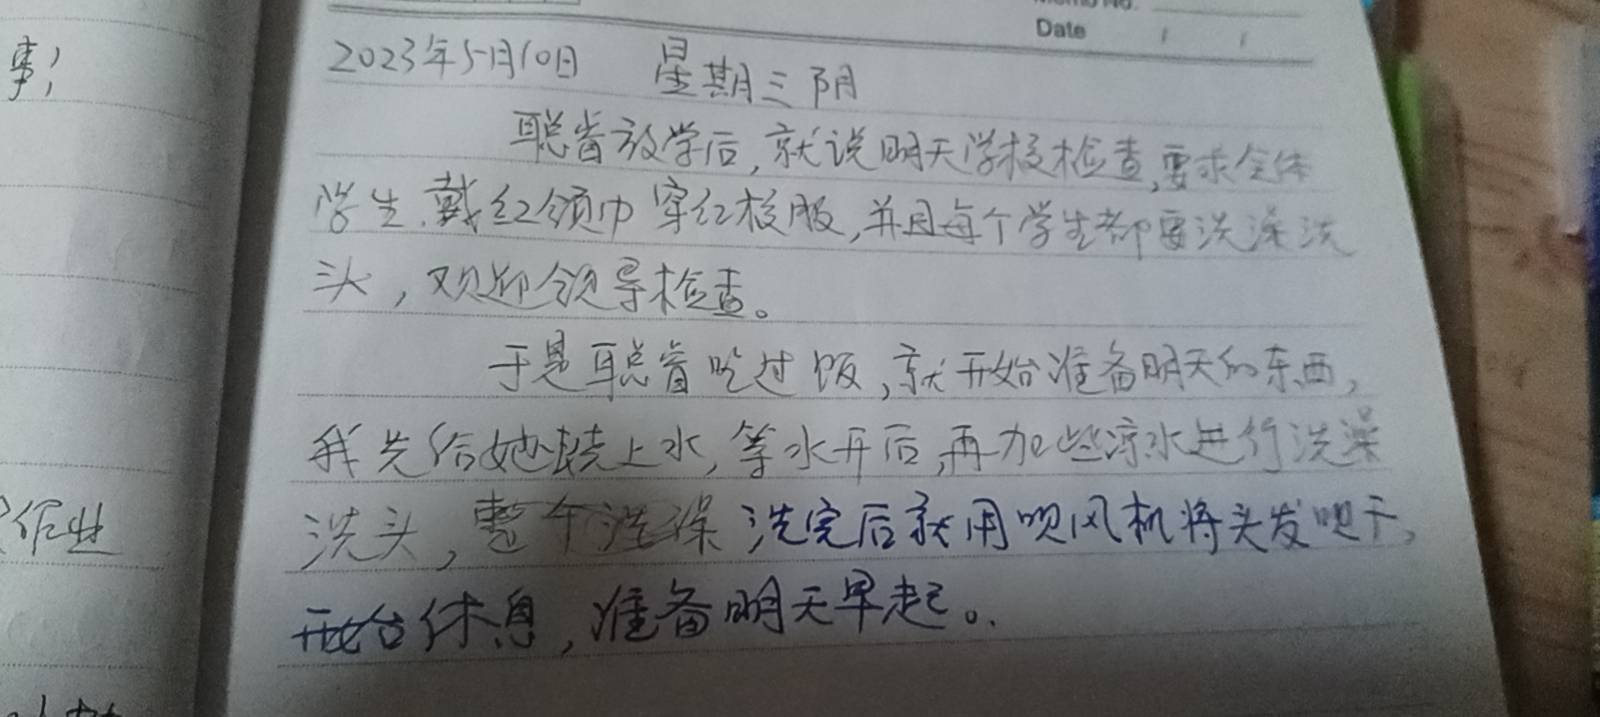 Memo No.
Date / /
事;
2023年5月10日 星期三 阴
聪睿放学后,就说明天学校检查,要求全体
学生.戴红领巾 穿红校服,并且每个学生都要洗澡洗
头,欢迎领导检查。
于是聪睿吃过饭,就开始准备明天的东西,
我先给她烧上水,等水开后,再加些凉水进行洗澡
洗头,整个洗澡 洗完后就用吹风机将头发吹干,
开始休息,准备明天早起。
作业